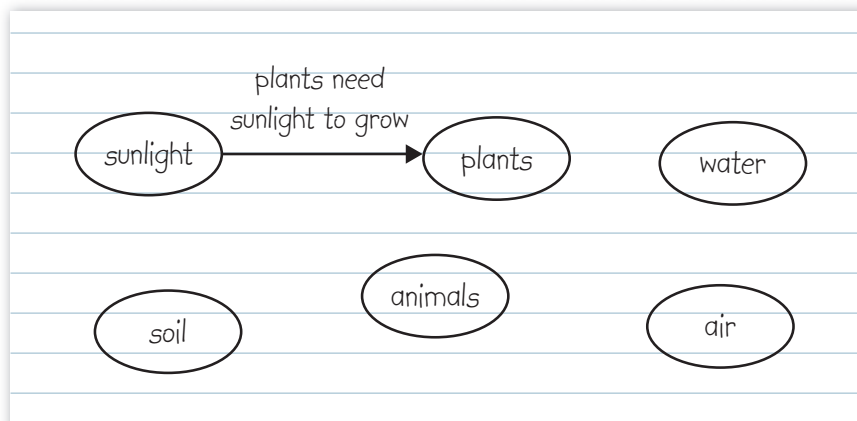 plants need
sunlight to grow
sunlight
plants
water
animals
soil
air